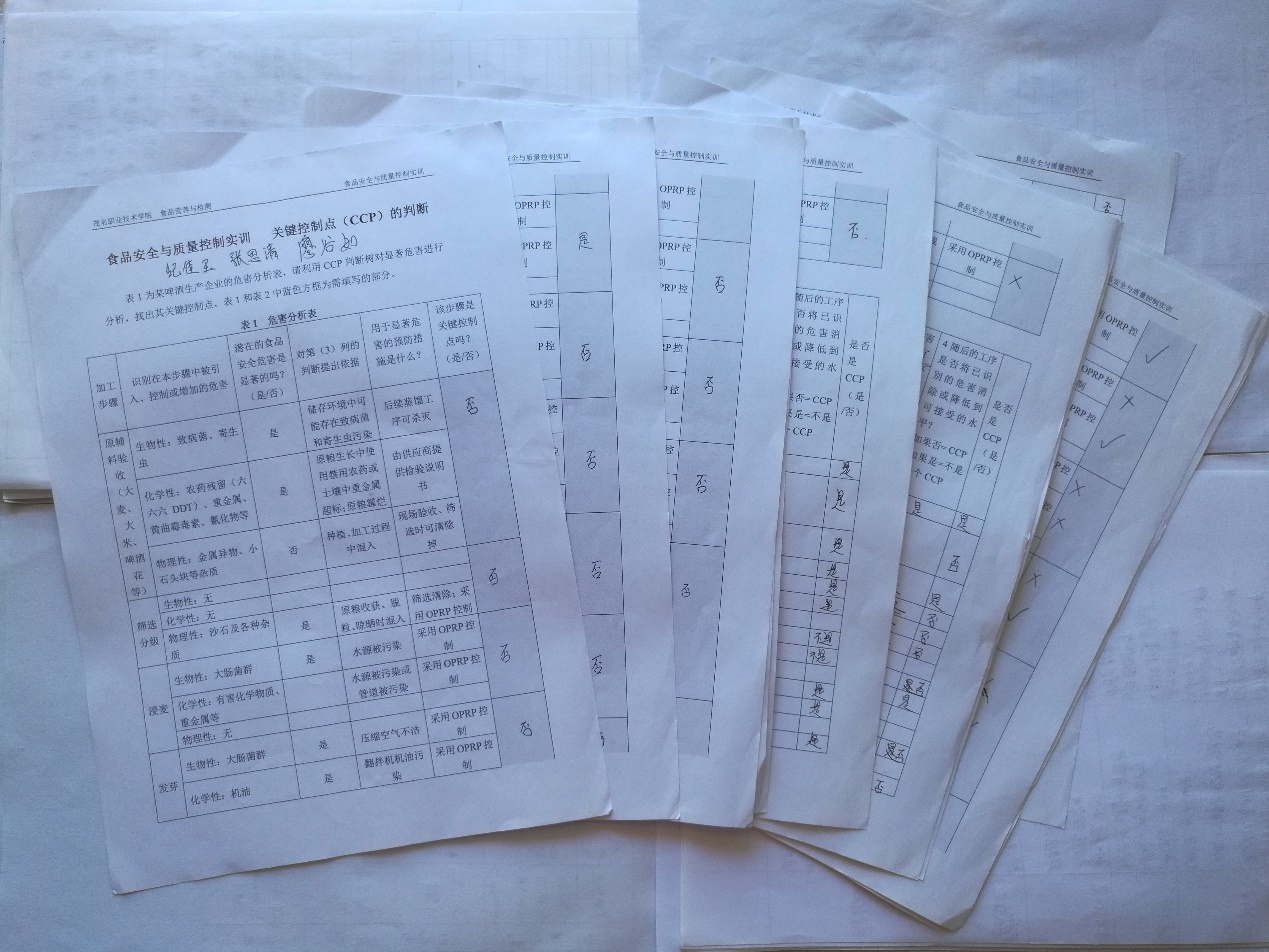 茂名职业技术学院 食品营养与检测
食品安全与质量控制实训
食品安全与质量控制实训 关键控制点（CCP）的判断
纪佳玉 张思清 廖谷如
表1为某啤酒生产企业的危害分析表，请利用CCP判断树对显著危害进行
分析，找出其关键控制点，表1和表2中蓝色方框为需填写的部分。
表1 危害分析表
加工步骤
识别在本步骤中被引入、控制或增加的危害
潜在的食品安全危害是显著的吗？（是/否）
对第（3）列的判断提出依据
用于显著危害的预防措施是什么？
该步骤是关键控制点吗？（是/否）
原辅料验收（大麦、大米、啤酒花等）
生物性：致病菌、寄生虫
是
储存环境中可能存在致病菌和寄生虫污染
后续蒸馏工序可杀灭
否
化学性：农药残留（六六六 DDT）、重金属、黄曲霉毒素、氰化物等
是
原粮生长中使用禁用农药或土壤中重金属超标；原粮霉烂
由供应商提供检验说明书
物理性：金属异物、小石头块等杂质
否
种植、加工过程中混入
现场验收、筛选时可清除掉
筛选分级
生物性：无
化学性：无
物理性：沙石及各种杂质
是
原粮收获、脱粒、晾晒时混入
筛选清除；采用OPRP控制
否
浸麦
生物性：大肠菌群
是
水源被污染
采用OPRP控制
否
化学性：有害化学物质、重金属等
水源被污染或管道被污染
采用OPRP控制
物理性：无
发芽
生物性：大肠菌群
是
压缩空气不洁
采用OPRP控制
否
化学性：机油
是
翻拌机机油污染
采用OPRP控制
全与质量控制实训
OPRP控
是
否
否
否
否
全与质量控制实训
OPRP控
制
否
否
否
否
与质量控制实训
OPRP控
制
否
是否是CCP（是/否）
是
是
是
是
是
是
不是
不是
是
是
是
食品安全与质量控制实训
采用OPRP控制
×
4随后的工序是否将已识别的危害消除或降低到可接受的水平？
如果否=CCP
如果是=不是CCP
是否是CCP（是/否）
是
是
否
是
否
否
否
是否
是
是否
否
食品安全与质量控制实训
否
食品安全与质量控制实训
OPRP控
制
✓
×
✓
×
×
×
✓